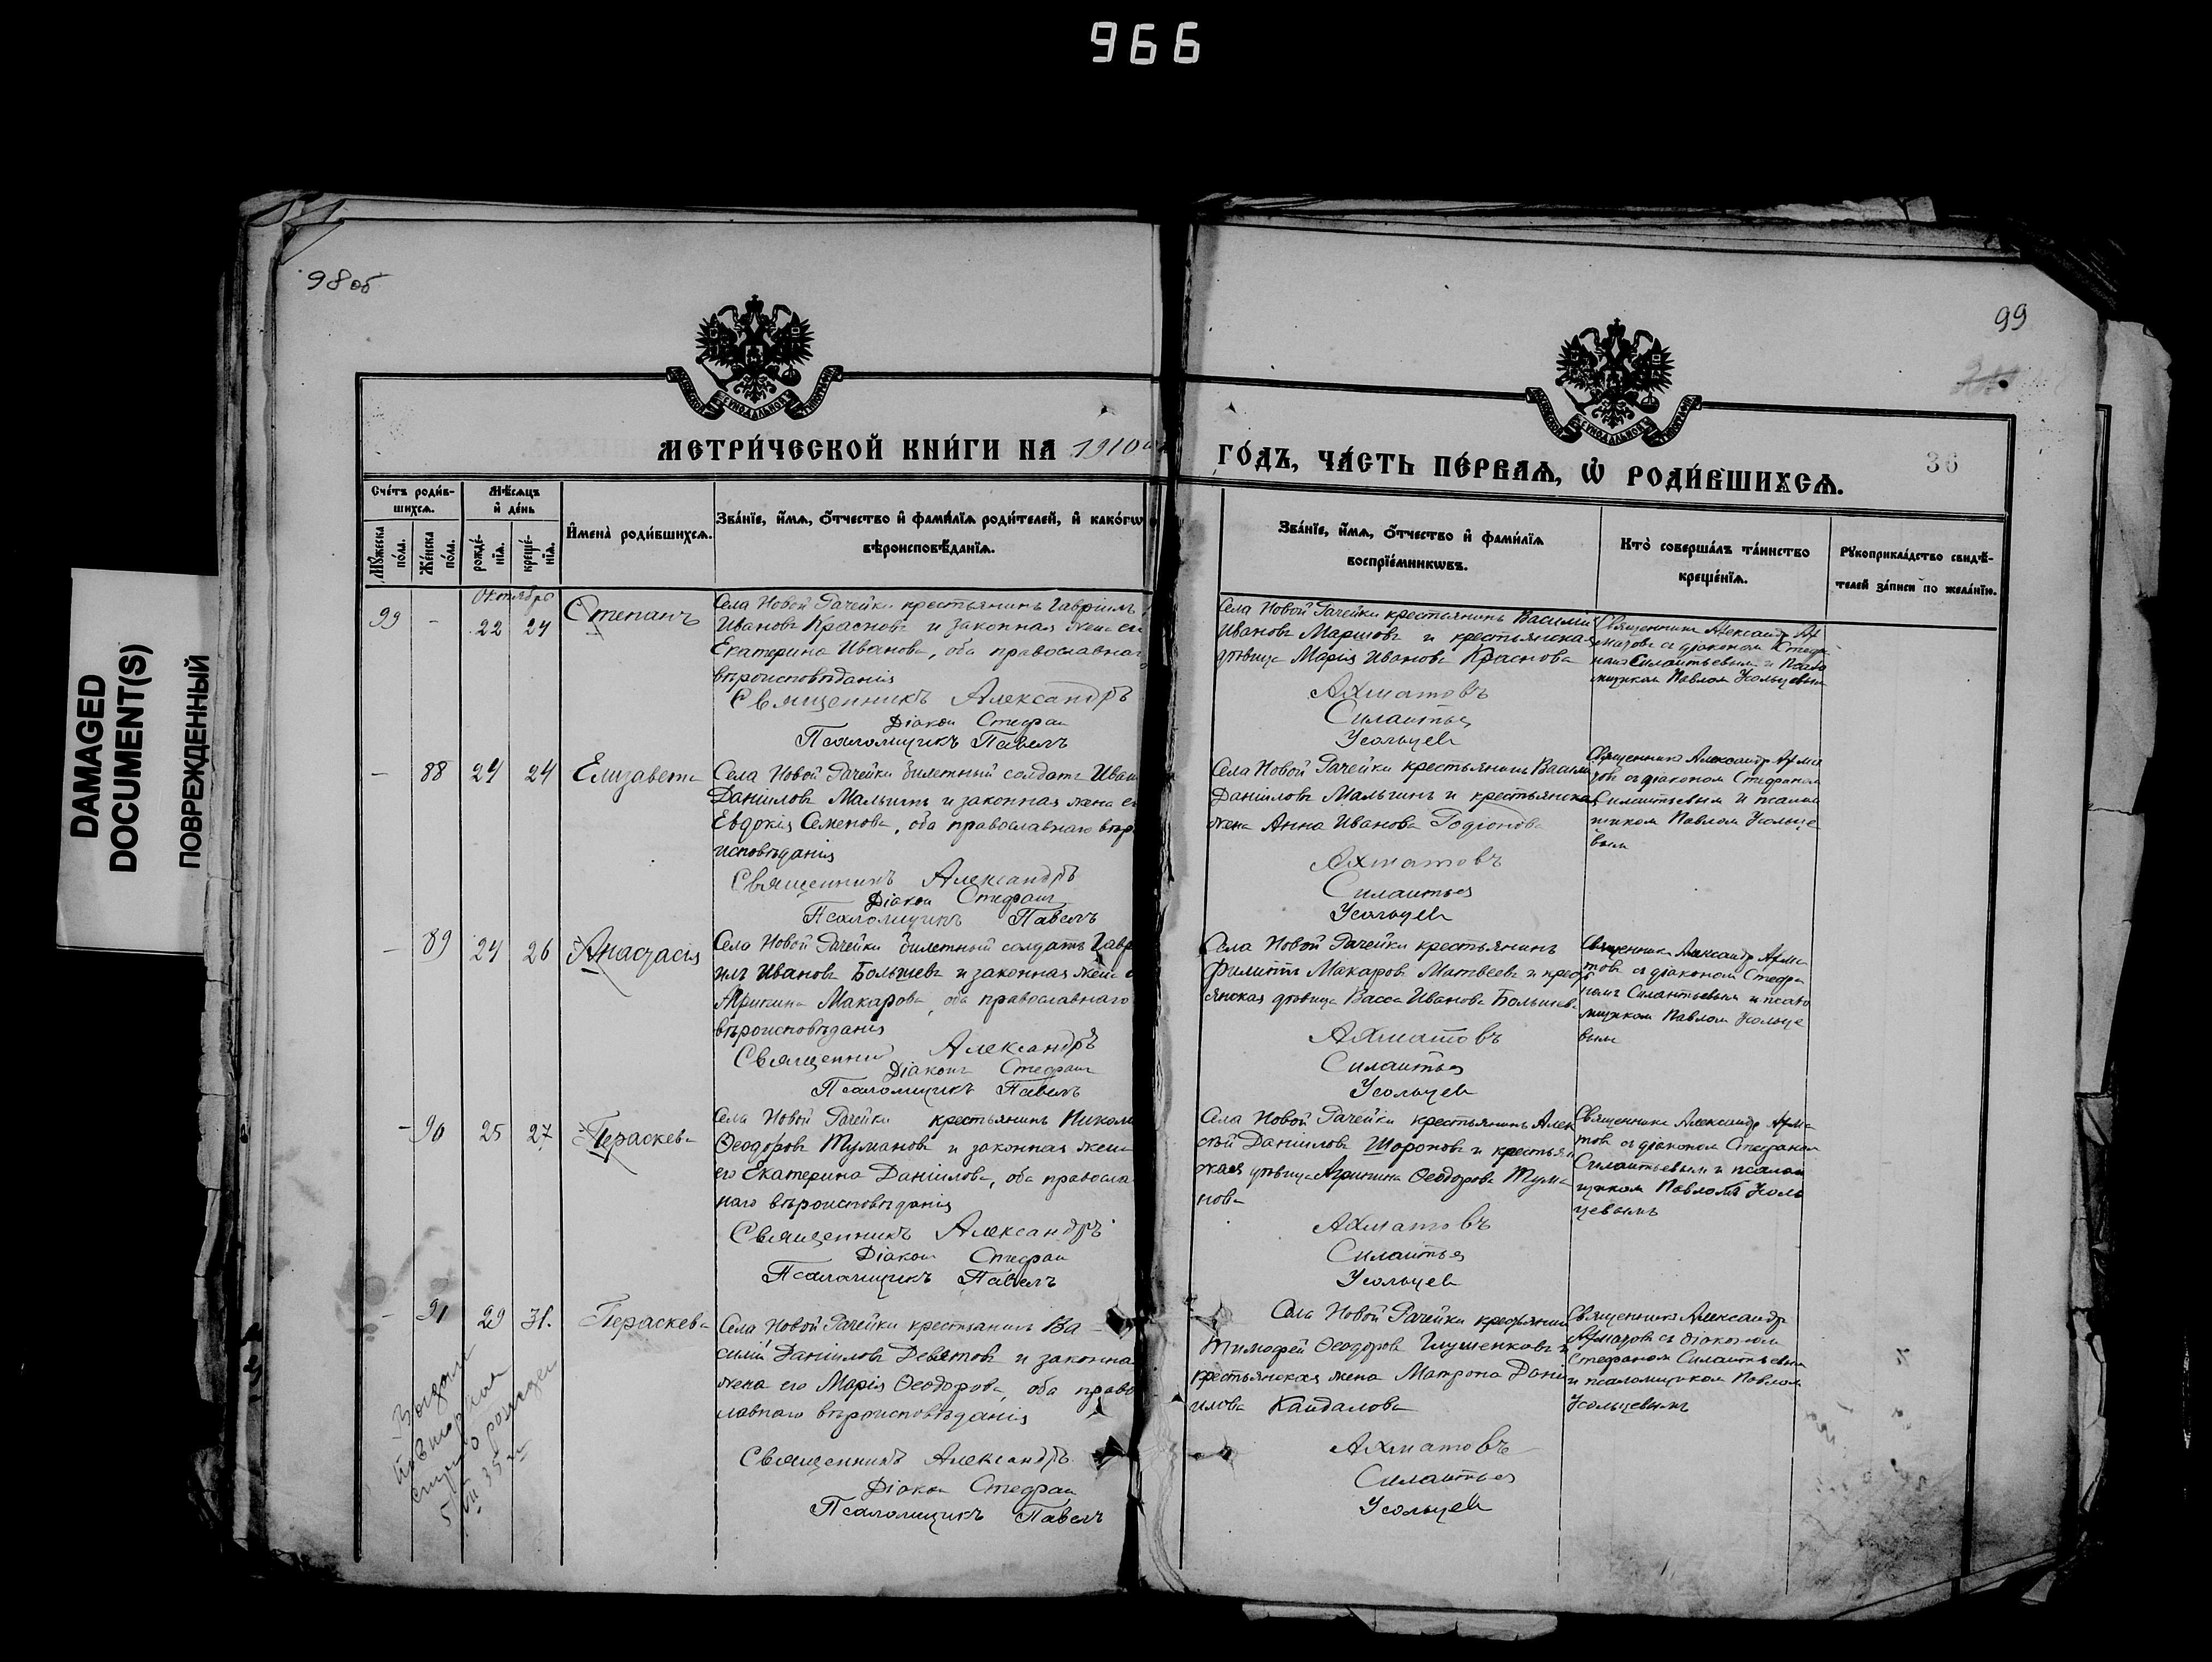 966
DAMAGED
DOCUMENT(S)
ПОВРЕЖДЕННЫЙ
98 об
99
36
МЕТРИ́ЧЕСКОЙ КНИ́ГИ НА 1910
ГО́ДЪ, ЧА́СТЬ ПЕ́РВАѦ, Ѿ РОДИ́ВШИХСѦ.
Сче́тъ роди́в-
шихсѧ.
Мꙋ́жеска по́ла.
Же́нска по́ла.
Мѣ́сѧцъ
и҆ де́нь
рожде́-
нїѧ.
креще́-
нїѧ.
И҆мена̀ роди́вшихсѧ.
Зва́нїе, и҆́мѧ, ѻ҆́тчество и҆ фами́лїѧ роди́телей, и҆ како́гѡ
вѣроисповѣ́данїѧ.
Зва́нїе, и҆́мѧ, ѻ҆́тчество и҆ фами́лїѧ
воспрїе́мникѡвъ.
Кто̀ соверша́лъ та́инство
креще́нїѧ.
Рꙋкоприкла́дство свидѣ́-
телей за́писи по жела́нїю.
Октября
99 - 22 24 Степанъ
Села Новой Рачейки крестьянинъ Гавріилъ
Ивановъ Красновъ и законная жена его
Екатерина Иванова, оба православнаго
вѣроисповѣданія
Священникъ Александръ
Діакон Стефан
Псаломщикъ Павелъ
Села Новой Рачейки крестьянинъ Василій
Ивановъ Маршовъ и крестьянская
дѣвица Марія Иванова Краснова
Ахматовъ
Силантьев
Усольцев
Священникъ Александр Ах
матовъ съ діаконом Стефа
номъ Силантьевым и псало
мщиком Павлом Усольцевым
- 88 24 24 Елизавета
Села Новой Рачейки билетный солдатъ Иван
Даніиловъ Мальгинъ и законная жена его
Евдокія Семенова, оба православнаго вѣро
исповѣданія
Священникъ Александръ
Діакон Стефанъ
Псаломщикъ Павелъ
Села Новой Рачейки крестьянинъ Василій
Даніиловъ Мальгинъ и крестьянская
жена Анна Иванова Родіонова
Ахматовъ
Силантьев
Усольцев
Священникъ Александр Ахма
товъ съ діаконом Стефаном
Силантьевым и псалом
щиком Павлом Усольце
вым
- 89 24 26 Анастасія
Села Новой Рачейки билетный солдатъ Гавр
илъ Ивановъ Большевъ и законная жена
Агрипина Макарова, оба православнаго
вѣроисповѣданія
Священник Александръ
Діаконъ Стефанъ
Псаломщикъ Павелъ
Села Новой Рачейки крестьянинъ
Филиппъ Макаровъ Матвеевъ и кресть
янская дѣвица Васса Иванова Большева
Ахматовъ
Силантьев
Усольцев
Священникъ Александр Ахма
товъ съ діаконом Стефа
номъ Силантьевым и псало
мщиком Павлом Усольце
вым
- 90 25 27 Пераскева
Села Новой Рачейки крестьянинъ Никола
Ѳеодоровъ Тумановъ и законная жена
его Екатерина Даніилова, оба правосла
наго вѣроисповѣданія
Священникъ Александръ
Діакон Стефан
Псаломщикъ Павелъ
Села Новой Рачейки крестьянинъ Алек
сѣй Даниловъ Шороповъ и крестьян
ская дѣвица Агрипина Ѳеодорова Тума
нова
Ахматовъ
Силантьев
Усольцев
Священникъ Александр Ахма
товъ съ діаконом Стефаном
Силантьевым и псалом
щиком Павломъ Усоль
цевымъ
- 91 29 31. Пераскева
Села Новой Рачейки крестьянинъ Ва-
силій Даниловъ Девятовъ и законна
жена его Марія Ѳеодорова, оба право
лавнаго вѣроисповѣданія
Священникъ Александръ
Діакон Стефан
Псаломщикъ Павелъ
Села Новой Рачейки крестьянин
Тимофей Ѳеодоровъ Глушенковъ и
крестьянская жена Матрона Дани
илова Кандалова
Ахматовъ
Силантьев
Усольцев
Священникъ Александр
Ахматовъ съ діаконом
Стефаном Силантьевым
и псаломщиком Павлом
Усольцевымъ
повторная
о рожден
5/VII 35 г